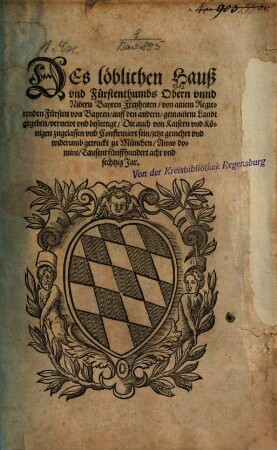 DEs löblichen Hauß
vnd Fürstenthumbs Obern vnnd
Nidern Bayren Freyheiten / von ainem Regie-
renden Fürsten von Bayren / auff den andern / gemainem Landt
gegeben / vernewt vnd bestettigt / Die auch von Kaysern vnd Kö-
nigen zugelassen vnd Confirmiert sein / jetzt gemehrt vnd
widerumb getruckt zu München / Anno do-
mini / Tausent fünffhundert acht vnd
sechtzig Jar.
Von der Kreisbibliothek Regensburg